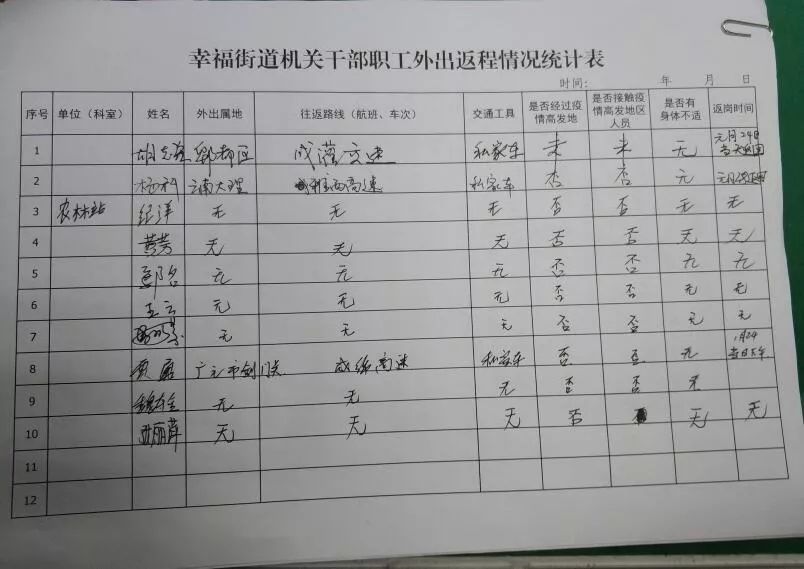 幸福街道机关干部职工外出返程情况统计表
时间： 年 月 日
序号 单位（科室） 姓名 外出属地 往返路线（航班、车次） 交通工具 是否经过疫情高发地 是否接触疫情高发地区人员 是否有身体不适 返岗时间
1 郫都区 成灌交速 私家车 未 未 无 元月24日
2 杨科 云南大理 高速 私家车 否 否 无
3 农林站 纪洋 无 无 无 否 否 无 无
4 黄芳 无 无 无 否 否 无 无
5 无 无 无 否 否 无 无
6 王云 无 无 无 否 否 无 无
7 无 无 无 否 否 无 无
8 广元市剑门关 成绵高速 私家车 否 否 无 1月24
9 无 无 无 否 否 无
10 丽萍 无 无 无 否 无 无
11
12